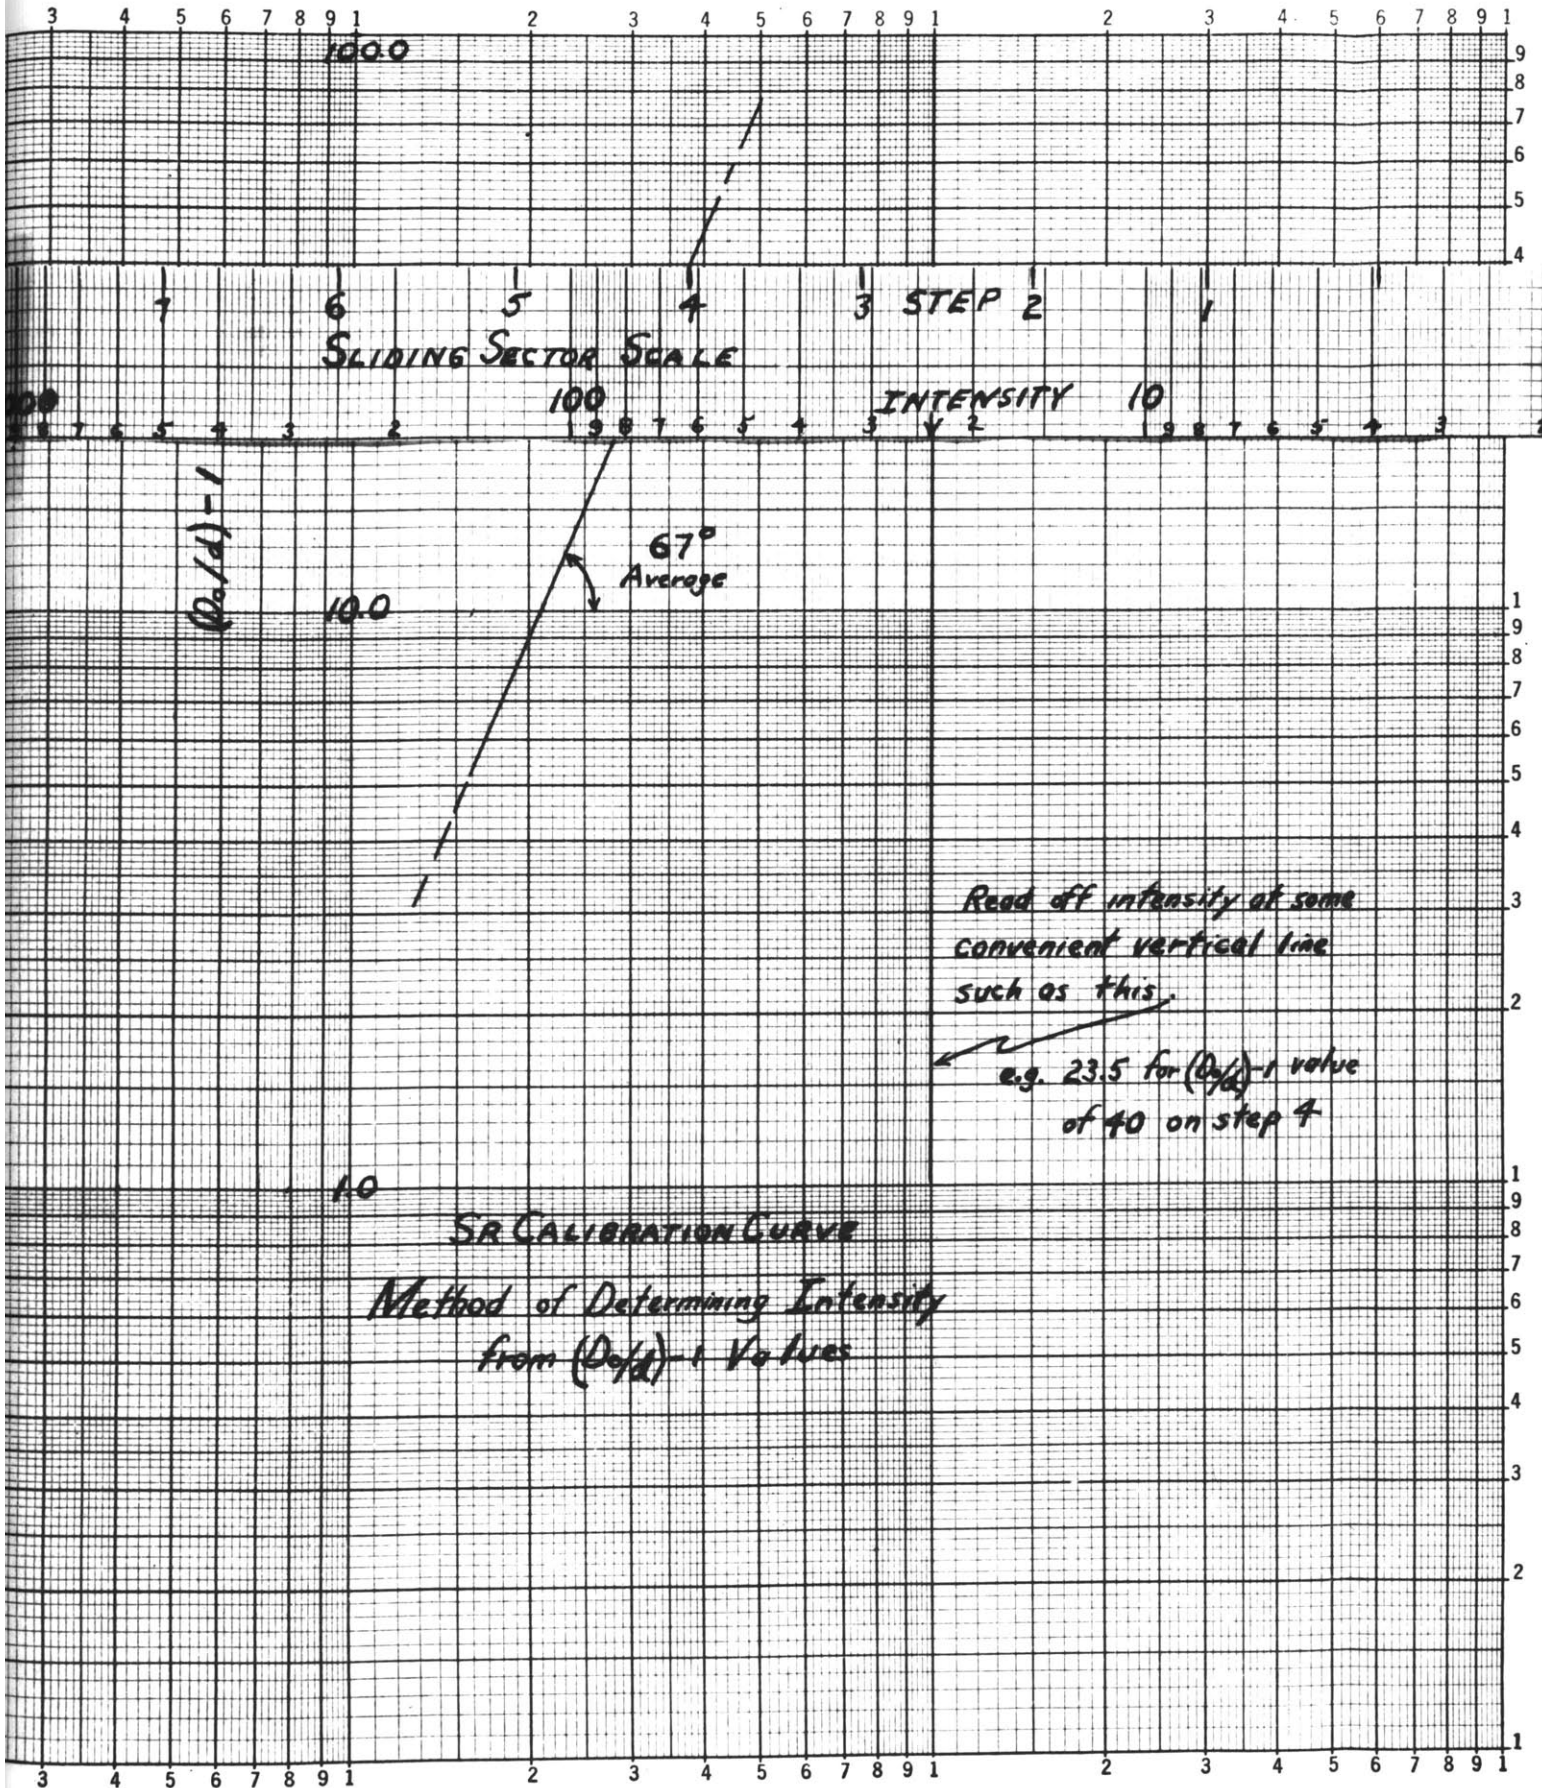 3 4 5 6 7 8 9 1 2 3 4 5 6 7 8 9 1 2 3 4 5 6 7 8 9 1
100.0
9
8
7
6
5
4
7 6 5 4 3 STEP 2 1
SLIDING SECTOR SCALE
100 INTENSITY 10
8 7 6 5 4 3 2 9 8 7 6 5 4 3 2 9 8 7 6 5 4 3 2
(D₀/d)-1
67°
Average
10.0
1
9
8
7
6
5
4
3
2
Read off intensity at some
convenient vertical line
such as this.
e.g. 23.5 for (D₀/d)-1 value
of 40 on step 4
1.0
1
9
8
7
6
5
4
3
2
1
SR CALIBRATION CURVE
Method of Determining Intensity
from (D₀/d)-1 Values
3 4 5 6 7 8 9 1 2 3 4 5 6 7 8 9 1 2 3 4 5 6 7 8 9 1